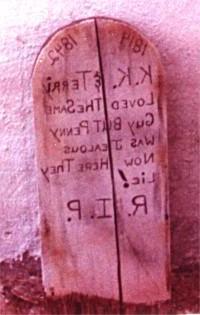 1819 1842
K.K. & TERRY
LOVED THE SAME
GUY BUT PENNY
WAS JEALOUS
NOW HERE THEY
LIE!
R.I.P.